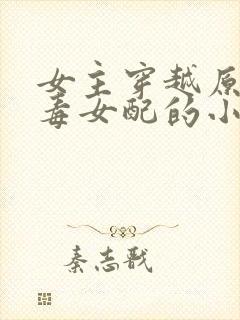 女主穿越原
毒女配的小
秦志戬